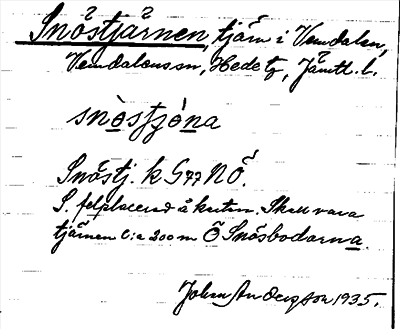 Snöstjärnen, tjärn i Vemdalen,
Vemdalens sn, Hede tg, Jämtl. l.
snòstjó̀na
Snöstj. k G77 NÖ.
S. felplacerad å kartan. Skall vara
tjärnen c:a 200 m Ö Snösbodarna.
Johan Anderson 1935.